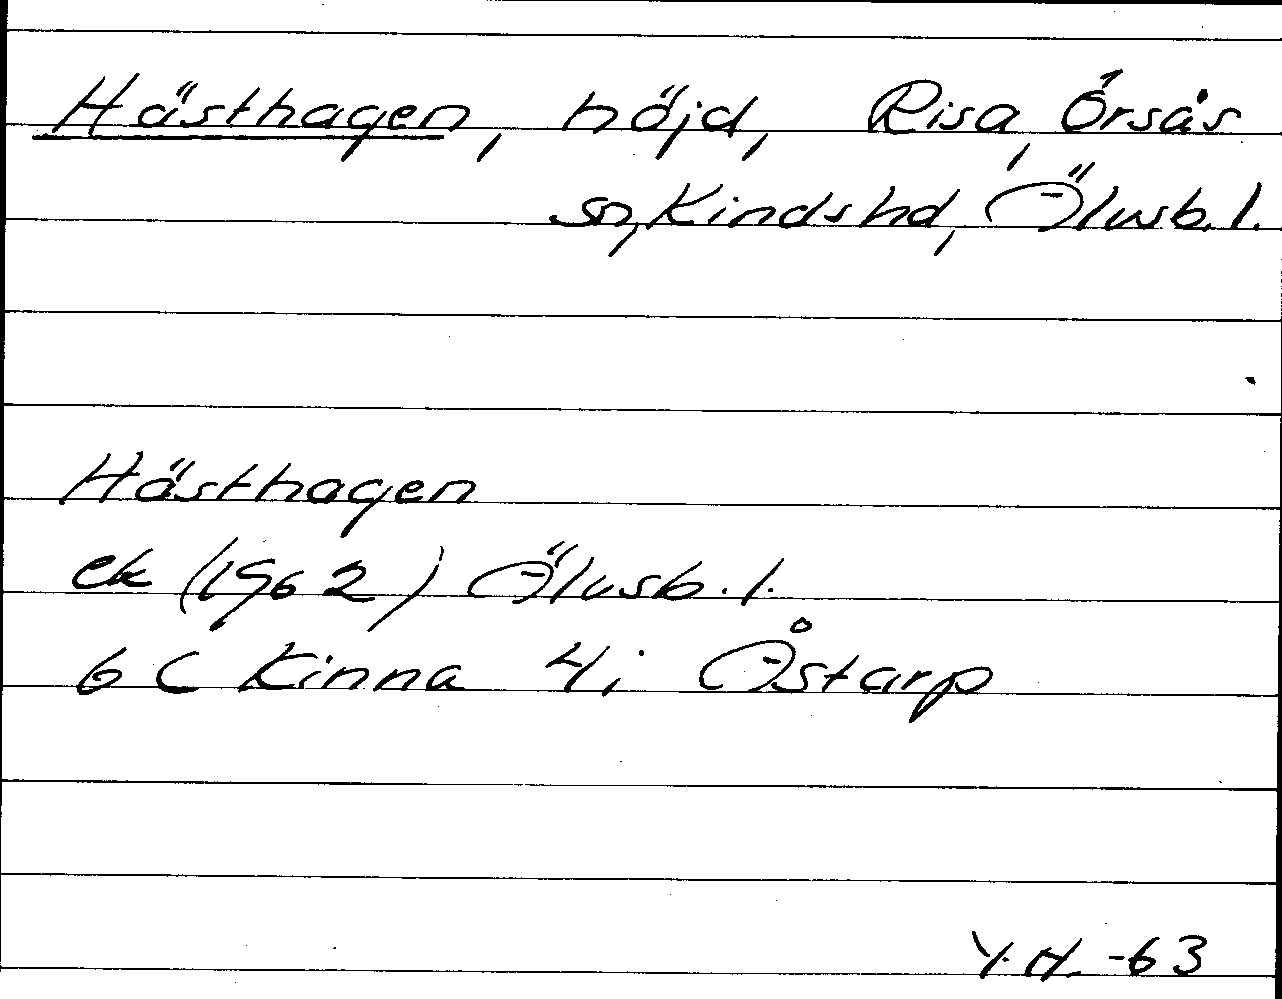 Hästhagen, höjd, Risa, Örsås
sn, Kinds hd, Älvsb. l.
Hästhagen
ek (1962) Älvsb. l.
6 C Kinna 4i Åstarp
Y. H. -63